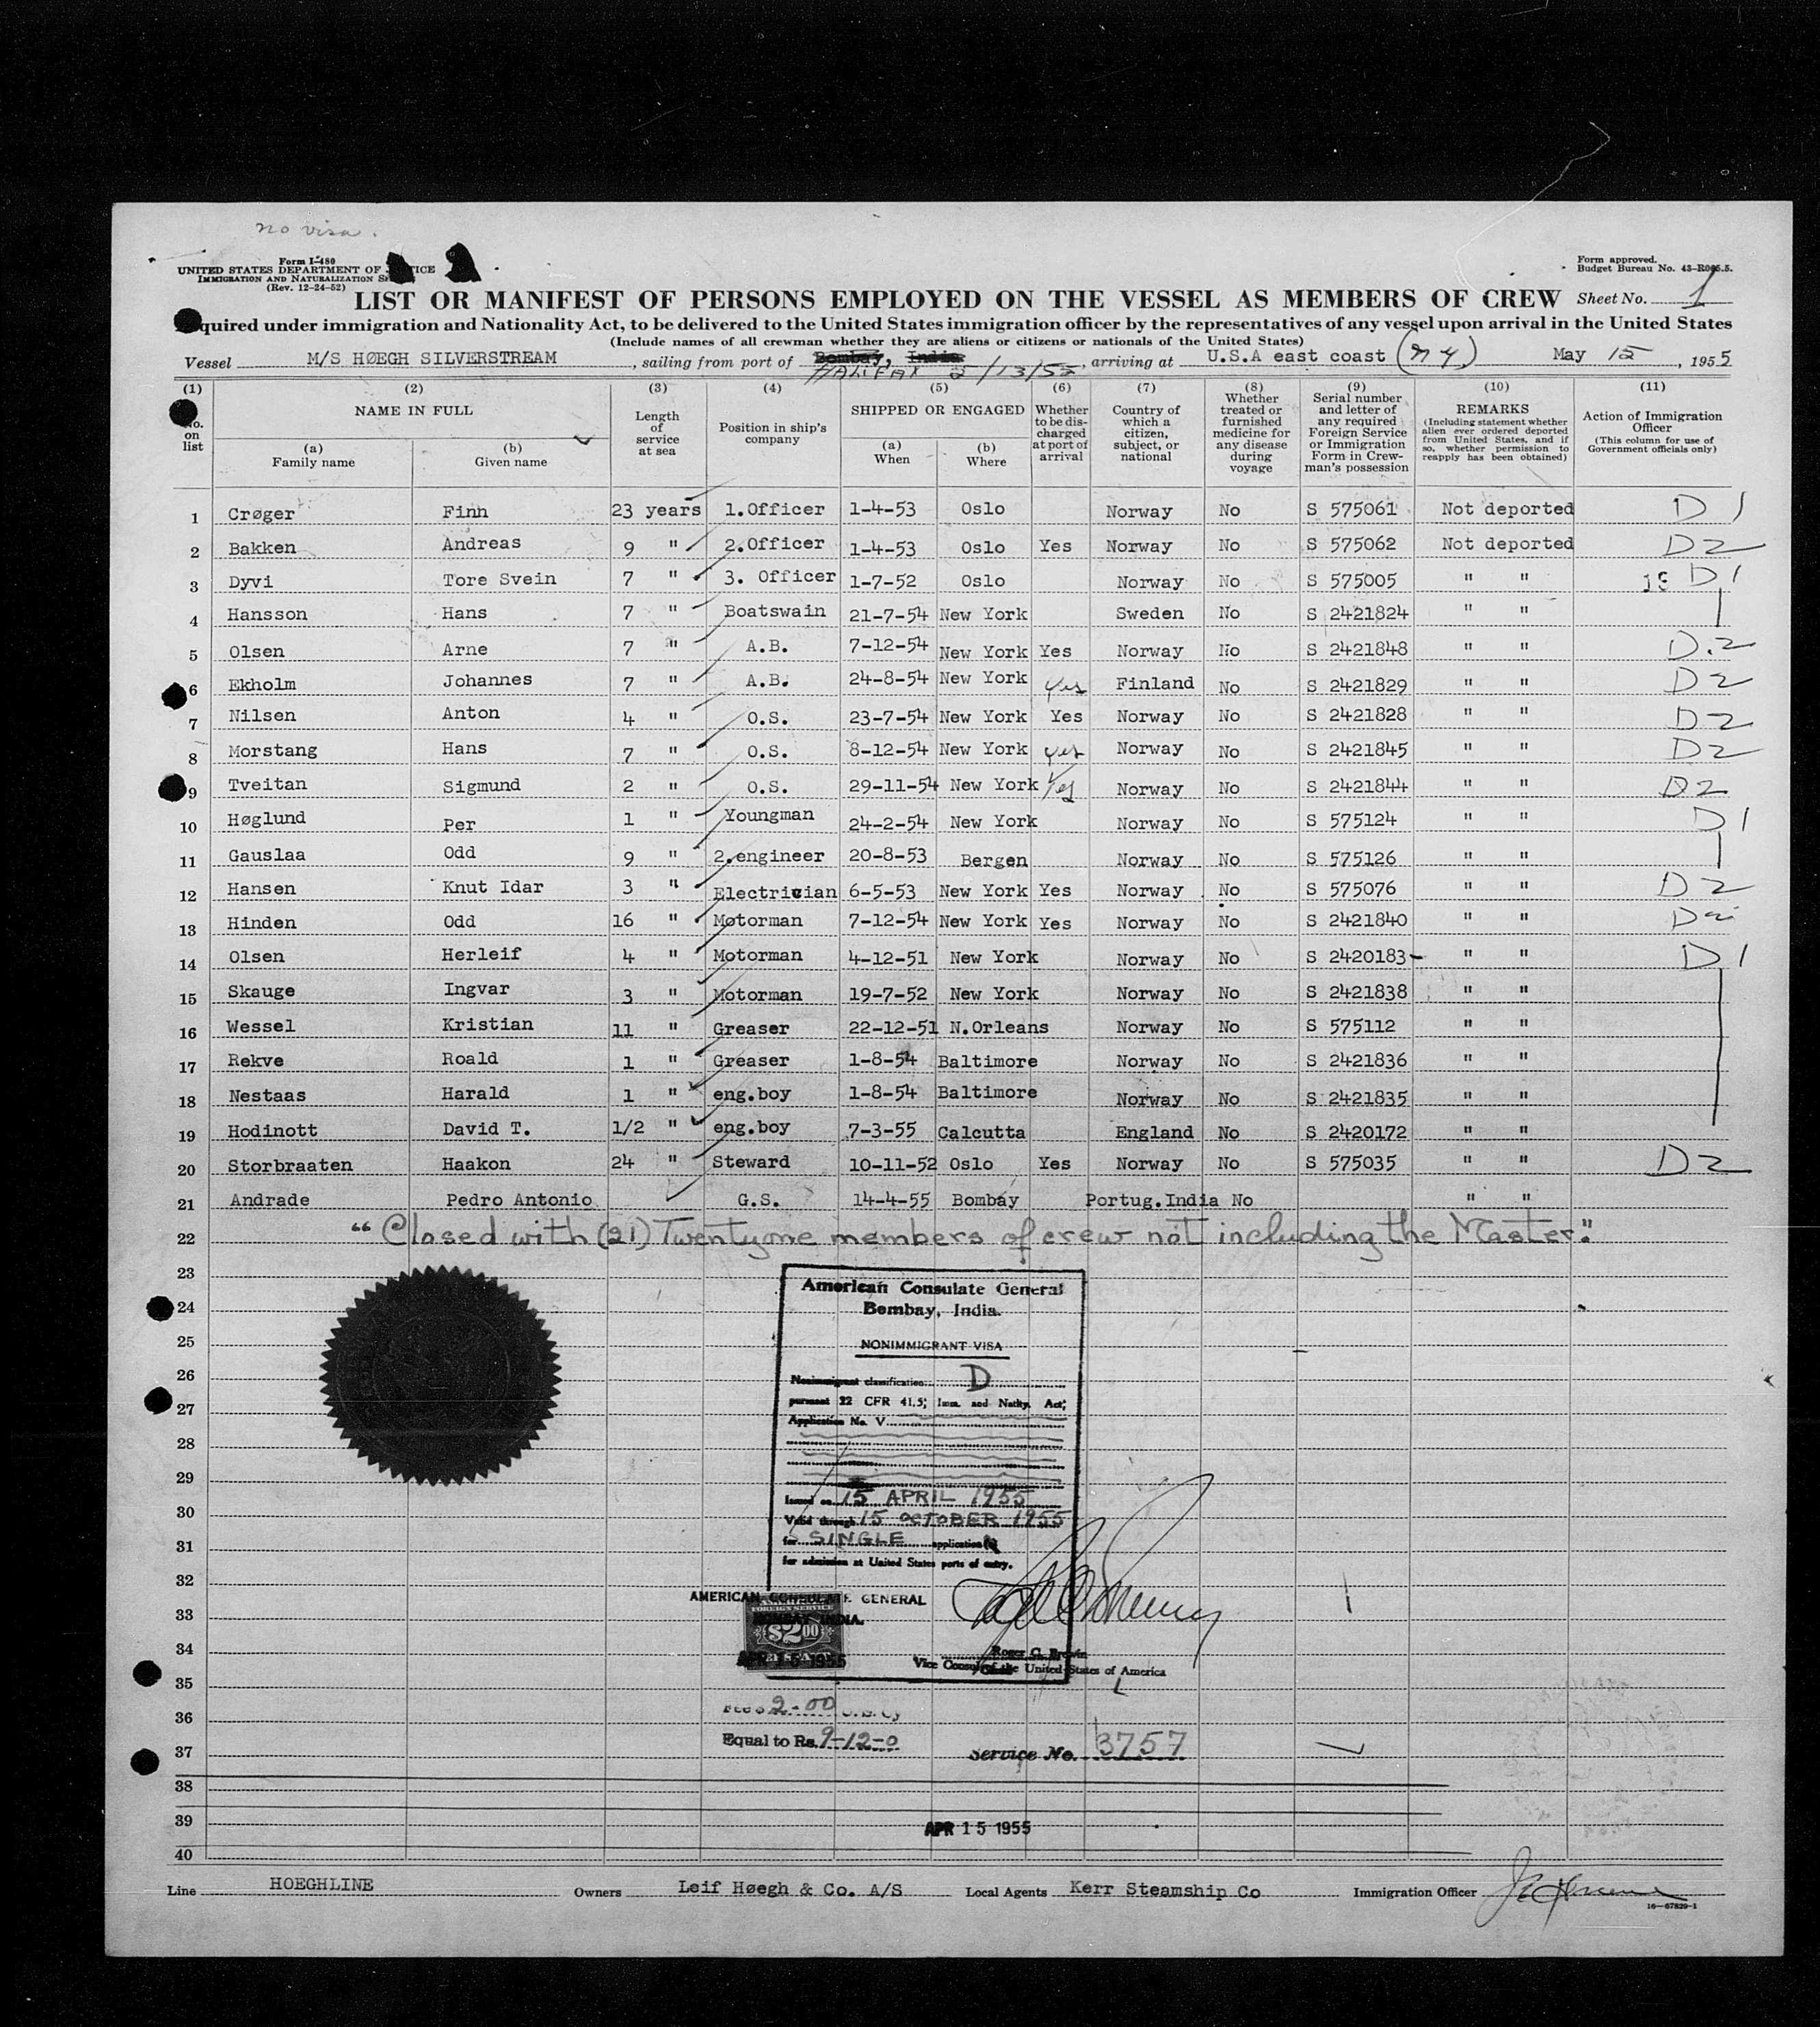 no visa.
Form I-480
UNITED STATES DEPARTMENT OF JUSTICE
IMMIGRATION AND NATURALIZATION
(Rev. 12-24-52)
Form approved.
Budget Bureau No. 43-R065.5.
LIST OR MANIFEST OF PERSONS EMPLOYED ON THE VESSEL AS MEMBERS OF CREW Sheet No. 1
quired under immigration and Nationality Act, to be delivered to the United States immigration officer by the representatives of any vessel upon arrival in the United States
(Include names of all crewman whether they are aliens or citizens or nationals of the United States)
Vessel M/S HØEGH SILVERSTREAM, sailing from port of Bombay, India, arriving at U.S.A east coast (NY) May 15, 1955
HALIFAX 5/13/55
(1) (2) (3) (4) (5) (6) (7) (8) (9) (10) (11)
No. on list
NAME IN FULL
(a) Family name
(b) Given name
Length of service at sea
Position in ship's company
SHIPPED OR ENGAGED
(a) When
(b) Where
Whether to be discharged at port of arrival
Country of which a citizen, subject, or national
Whether treated or furnished medicine for any disease during voyage
Serial number and letter of any required Foreign Service or Immigration Form in Crewman's possession
REMARKS
(Including statement whether alien ever ordered deported from United States, and if so, whether permission to reapply has been obtained)
Action of Immigration Officer
(This column for use of Government officials only)
1 Crøger Finn 23 years 1.Officer 1-4-53 Oslo Norway No S 575061 Not deported D 1
2 Bakken Andreas 9 " 2.Officer 1-4-53 Oslo Yes Norway No S 575062 Not deported D2
3 Dyvi Tore Svein 7 " 3. Officer 1-7-52 Oslo Norway No S 575005 " " D 1
4 Hansson Hans 7 " Boatswain 21-7-54 New York Sweden No S 2421824 " "
5 Olsen Arne 7 " A.B. 7-12-54 New York Yes Norway No S 2421848 " " D.2
6 Ekholm Johannes 7 " A.B. 24-8-54 New York Yes Finland No S 2421829 " " D2
7 Nilsen Anton 4 " O.S. 23-7-54 New York Yes Norway No S 2421828 " " D2
8 Morstang Hans 7 " O.S. 8-12-54 New York Yes Norway No S 2421845 " " D2
9 Tveitan Sigmund 2 " O.S. 29-11-54 New York Yes Norway No S 2421844 " " D2
10 Høglund Per 1 " Youngman 24-2-54 New York Norway No S 575124 " " D 1
11 Gauslaa Odd 9 " 2.engineer 20-8-53 Bergen Norway No S 575126 " "
12 Hansen Knut Idar 3 " Electrician 6-5-53 New York Yes Norway No S 575076 " " D2
13 Hinden Odd 16 " Motorman 7-12-54 New York Yes Norway No S 2421840 " " D2
14 Olsen Herleif 4 " Motorman 4-12-51 New York Norway No S 2420183- " " D 1
15 Skauge Ingvar 3 " Motorman 19-7-52 New York Norway No S 2421838 " "
16 Wessel Kristian 11 " Greaser 22-12-51 N.Orleans Norway No S 575112 " "
17 Rekve Roald 1 " Greaser 1-8-54 Baltimore Norway No S 2421836 " "
18 Nestaas Harald 1 " eng.boy 1-8-54 Baltimore Norway No S 2421835 " "
19 Hodinott David T. 1/2 " eng.boy 7-3-55 Calcutta England No S 2420172 " "
20 Storbraaten Haakon 24 " Steward 10-11-52 Oslo Yes Norway No S 575035 " " D2
21 Andrade Pedro Antonio G.S. 14-4-55 Bombay Portug.India No " "
22 "Closed with (21) Twentyone members of crew not including the Master."
23
24
25
26
27
28
29
30
31
32
33
34
35
36
37
38
39
40
American Consulate General
Bombay, India.
NONIMMIGRANT VISA
Nonimmigrant classification D
pursuant 22 CFR 41.5; Imm. and Natlty. Act;
Application No. V
Issued on 15 APRIL 1955
Valid through 15 OCTOBER 1955
for SINGLE application
for admission at United States ports of entry.
AMERICAN CONSULATE GENERAL
BOMBAY INDIA.
FOREIGN SERVICE
$2.00
APR 15 1955
Roger C. Brewin
Vice Consul of the United States of America
Fee $ 2-00 U.S. Cy
Equal to Rs. 9-12-0
Service No. 3757
APR 15 1955
Line HOEGHLINE Owners Leif Høegh & Co. A/S Local Agents Kerr Steamship Co Immigration Officer
16-67820-1